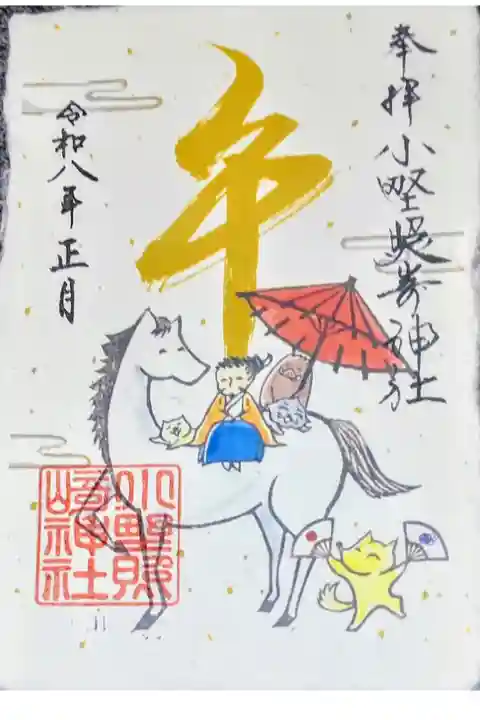 奉拝 小野照崎神社
午
令和八年 正月
小野照
崎神社